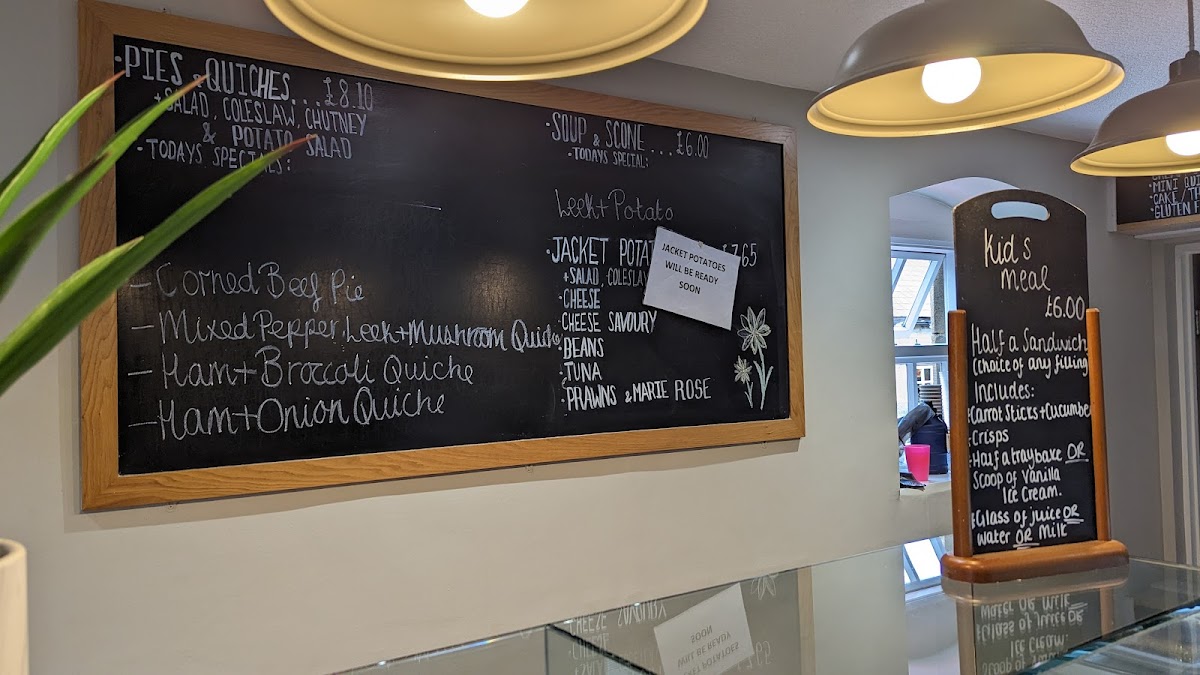 ·PIES & QUICHES...£8.10
+SALAD, COLESLAW, CHUTNEY
& POTATO SALAD
·TODAYS SPECIALS:
- Corned Beef Pie
- Mixed Pepper, Leek + Mushroom Quiche
- Ham + Broccoli Quiche
- Ham + Onion Quiche
·SOUP & SCONE...£6.00
·TODAYS SPECIAL:
Leek + Potato
·JACKET 7.65
+SALAD, COLESLAW
·CHEESE
·CHEESE SAVOURY
·BEANS
·TUNA
·PRAWNS & MARIE ROSE
JACKET POTATOES
WILL BE READY
SOON
Kid s
meal
£6.00
Half a Sandwich
(choice of any filling
Includes:
Carrot Sticks + Cucumber
Crisps
Half a traybake OR
Scoop of Vanilla
Ice Cream.
Glass of juice OR
water OR Milk
MINI
CAKE /
GLUTEN